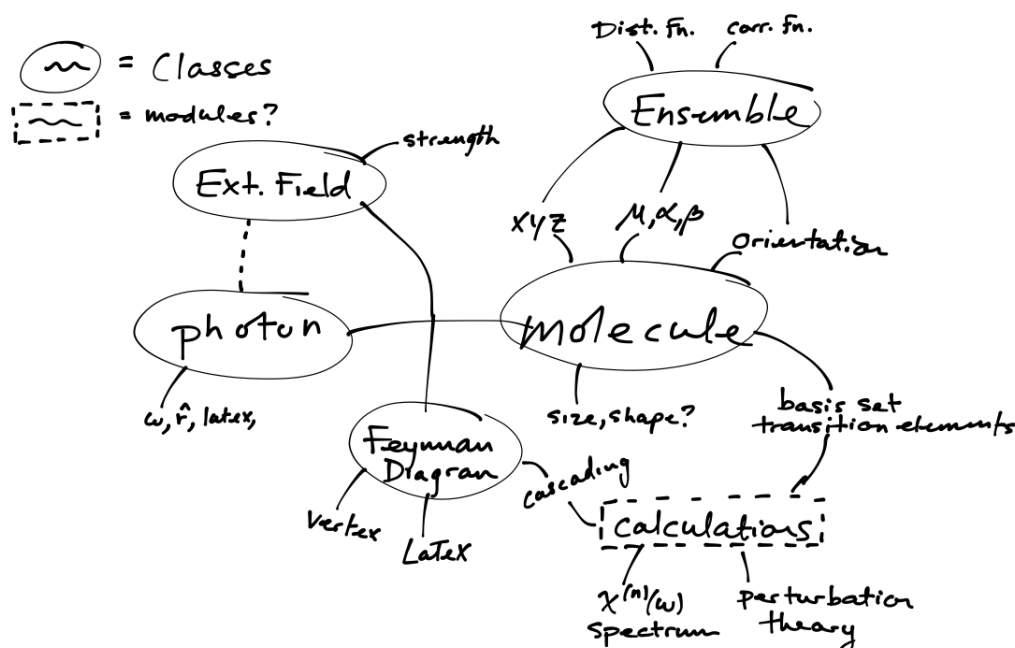 = Classes
= modules?
Dist. Fn. corr. Fn.
Ensemble
strength
Ext. Field
XYZ
μ,α,β
orientation
photon
molecule
ω, r̂, latex,
size, shape?
basis set
transition elements
Feynman
Diagram
cascading
vertex
LaTeX
calculations
χ⁽ⁿ⁾(ω)
spectrum
perturbation
theory